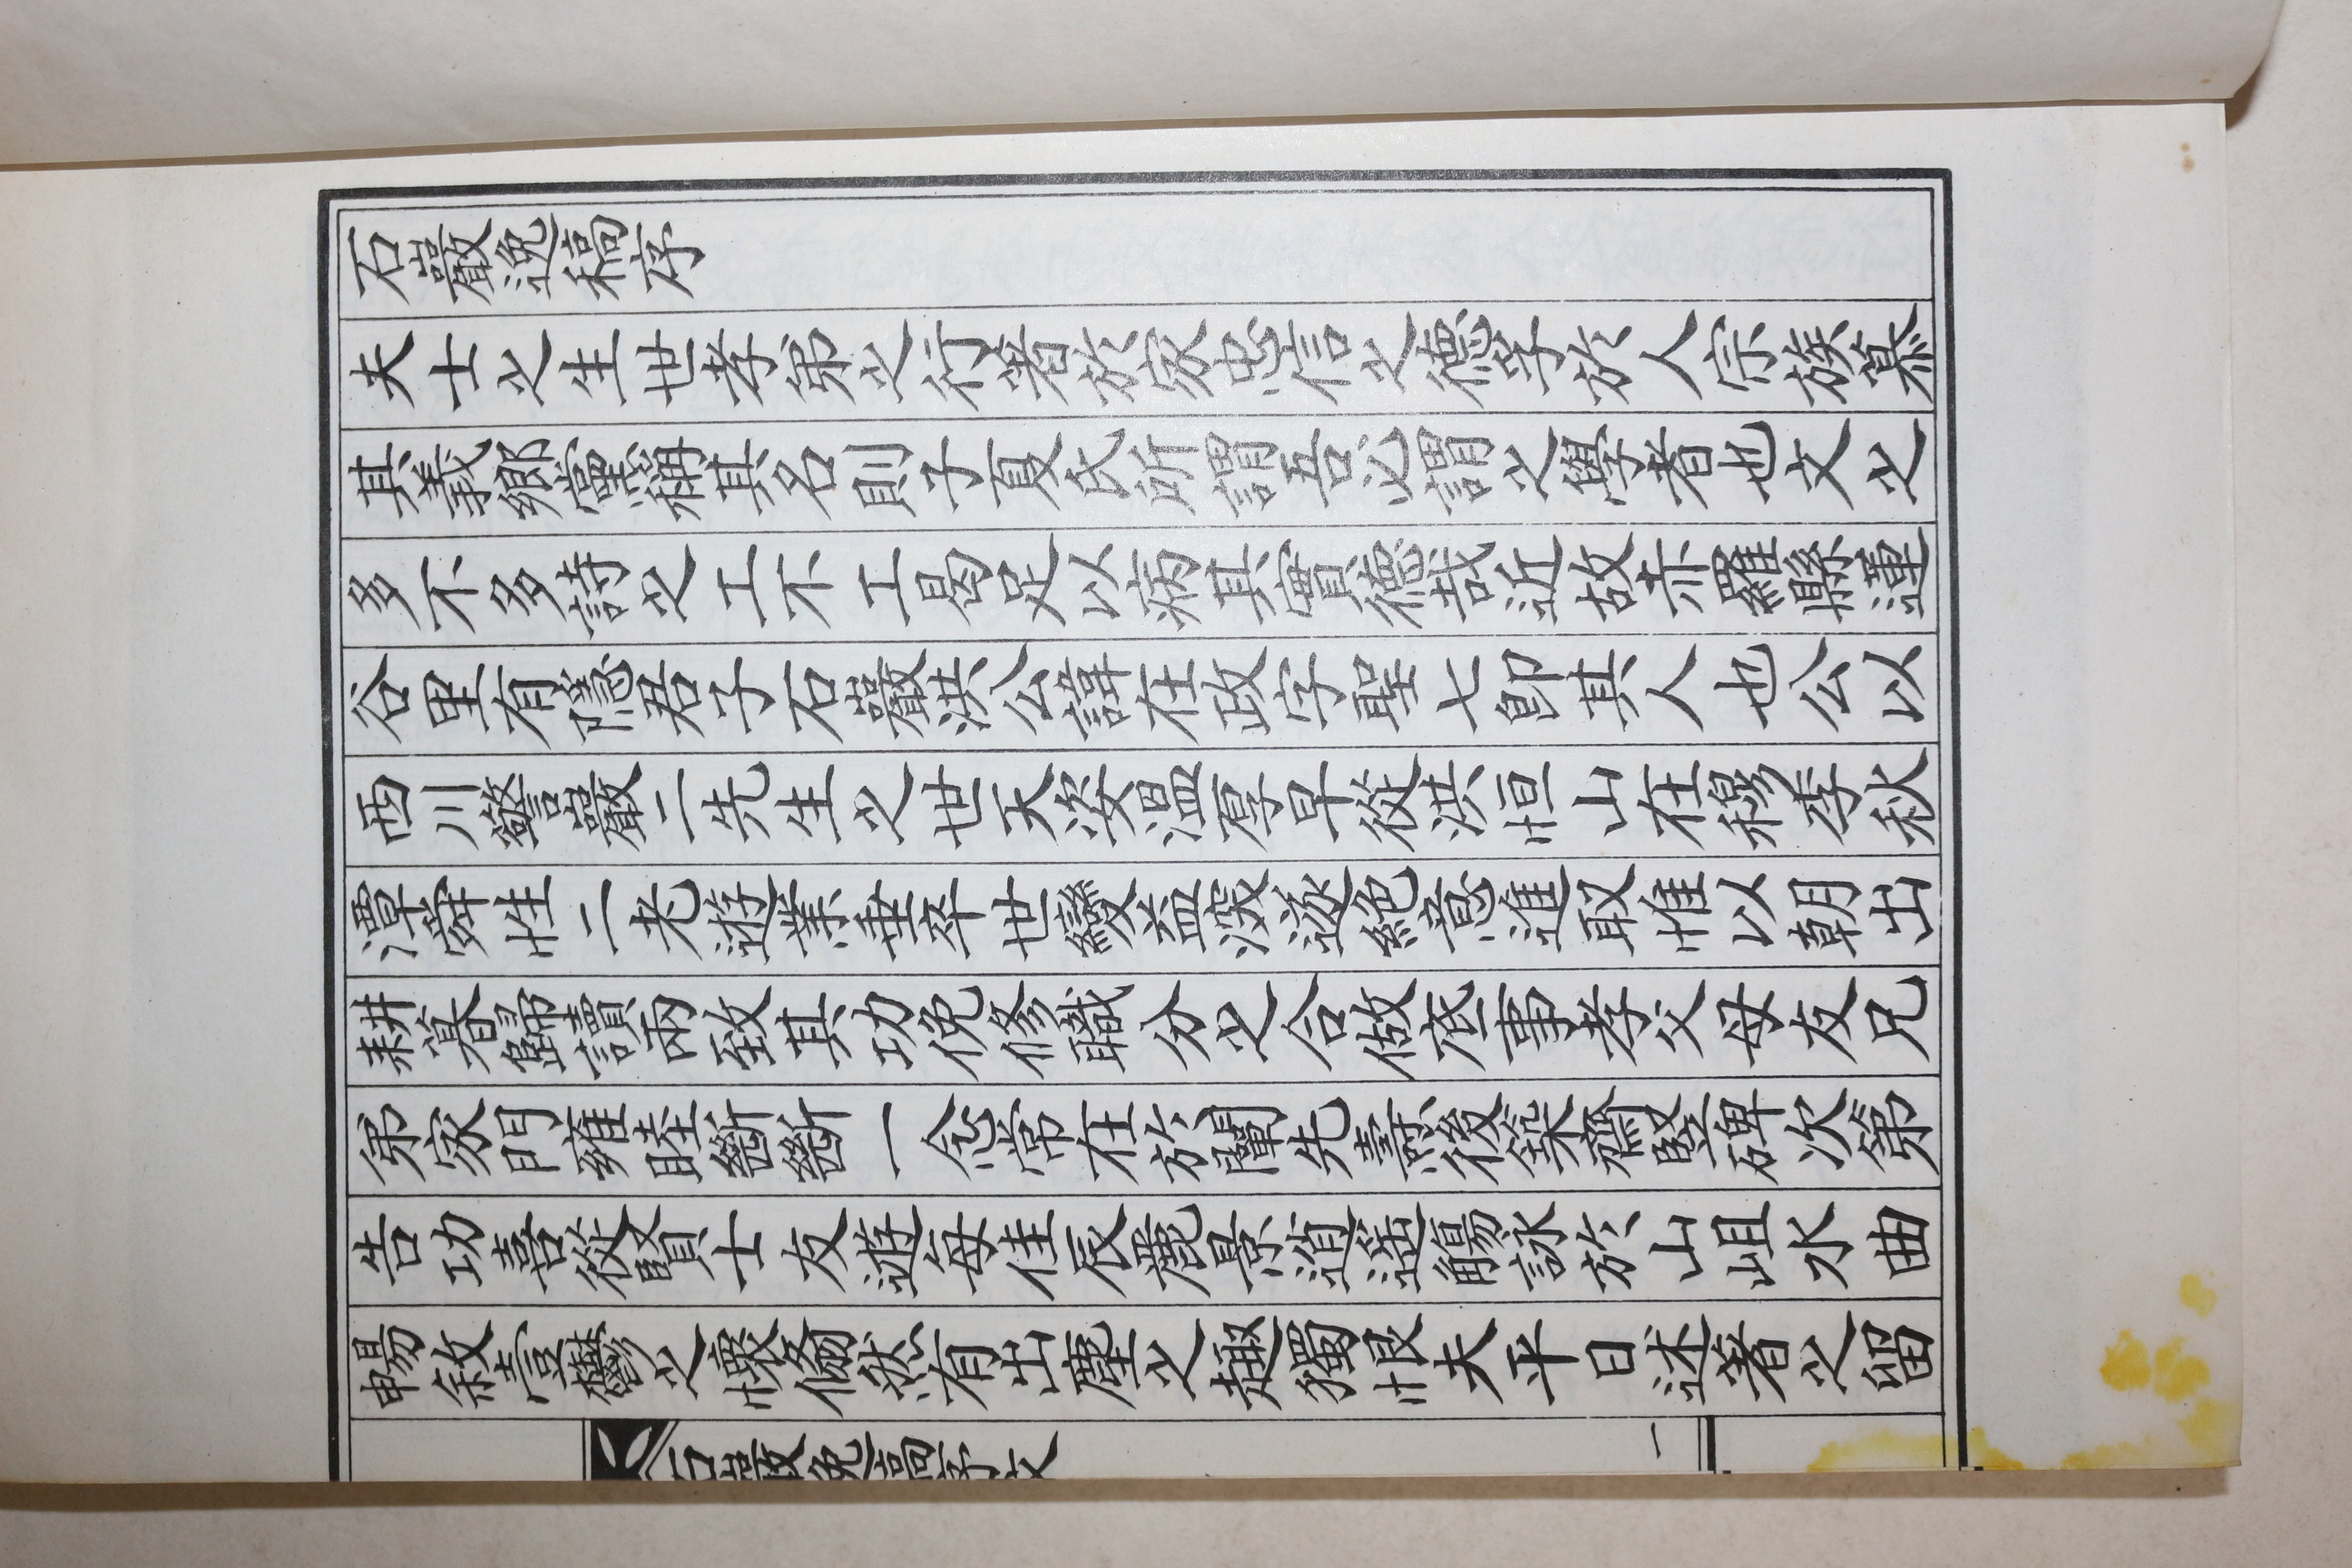 石巖逸稿序
夫士之生世孝弟之行著於家忠信之德孚於人宗族慕
其義鄉黨稱其名則子夏氏所謂吾必謂之學者也文之
多不多詩之工不工曷足以病其實德哉近故赤羅縣蓮
谷里有隱君子石巖洪公諱在政字聖七卽其人也公以
西川警巖二先生之世天姿溫厚早從洪恒山在穆李秋
潭舜性二老遊業垂卒世變益深遂絶意進取惟以朝出
耕暮歸讀兩致其功俛修職分之合做底事孝父母友兄
弟家門雍睦斷斷一念常在於闡先燾後築齋竪碑次第
告功喜從賢士友遊每佳辰麗景逍遙觴詠於山岨水曲
暢敘壹鬱之懷翛然有出塵之趣獨恨夫平日述著之留
石巖逸稿序文
一